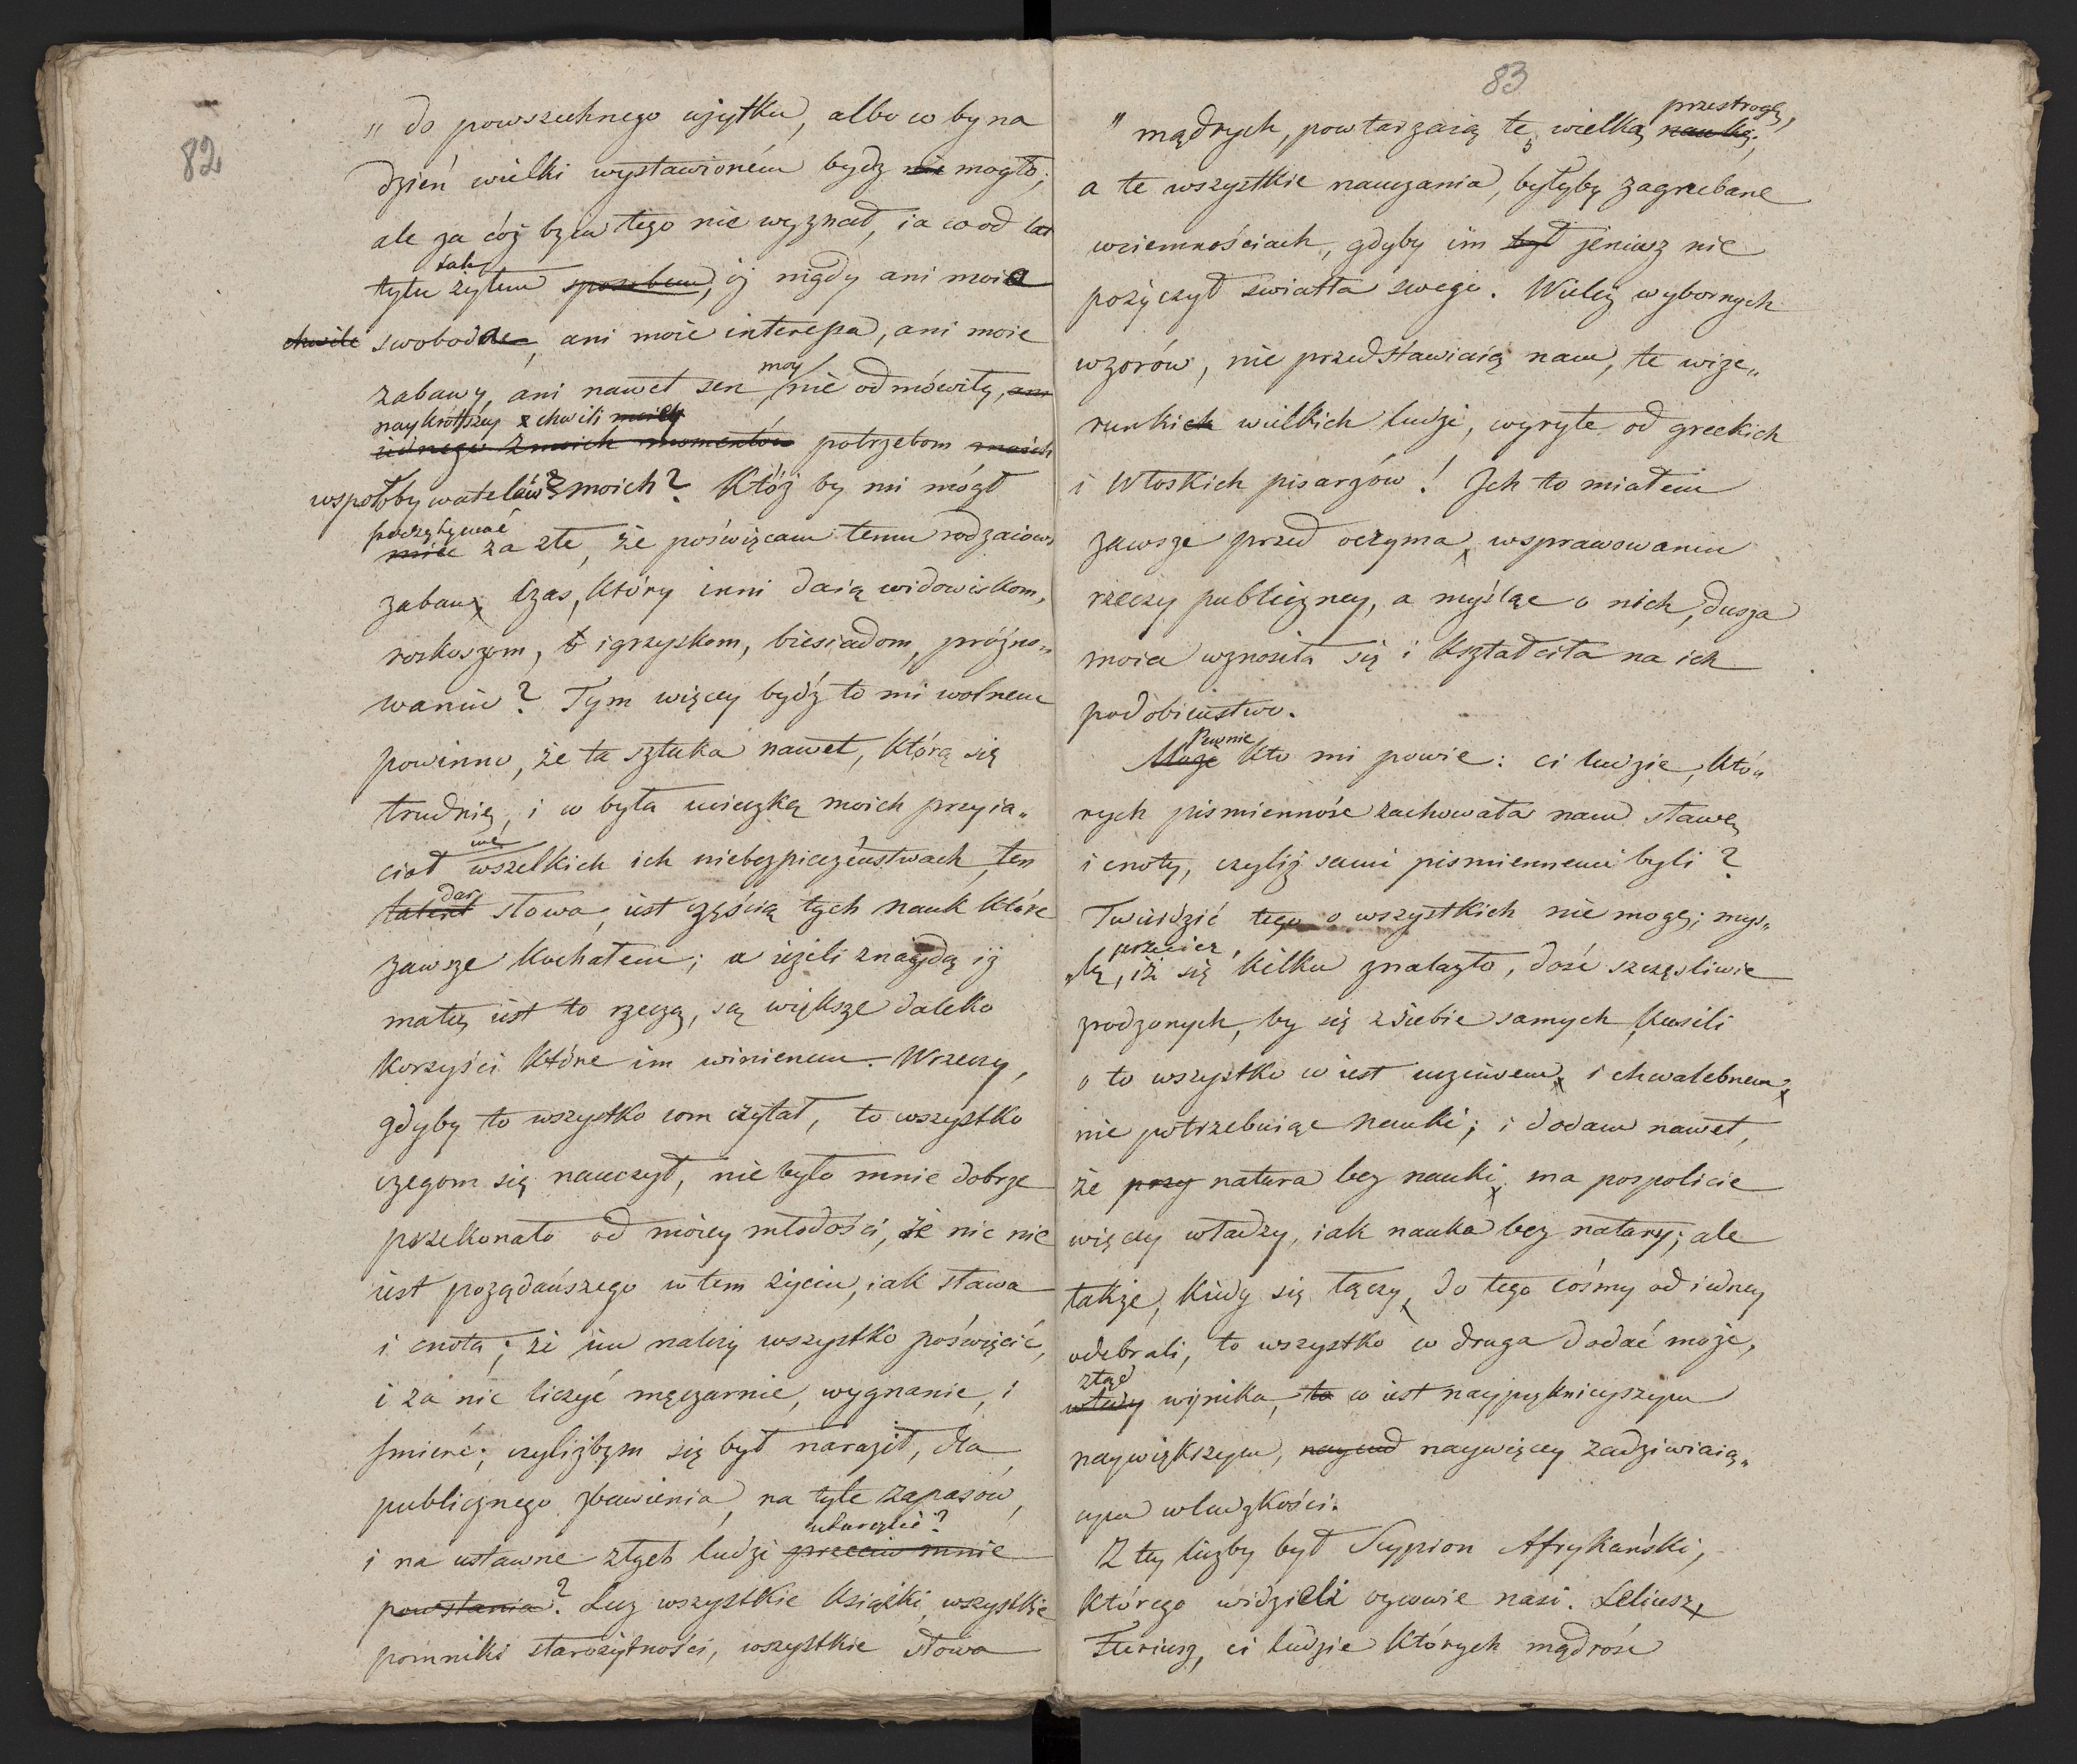 82
" do powszechnego użytku, albo co by na
dzień wielki wystawioném bydz nie mogło;
ale za cóż bym tego nie wyznał, ia co od lat
tak
tylu żyłem sposobem, iż nigdy ani moia
chwile swoboda, ani moie interessa, ani moie
moy
zabawy, ani nawet sen nie odmówiły, ani
naykrotszey z chwili moiey
iednego z moich momentów potrzebom moich
wspołobywatelów moich? Któż by mi mógł
poczytywać
mieć za złe, że poświęcam temu rodzaiowi
zabaw, czas, który inni daią widowiskom,
roskoszom, igrzyskom, biesiadom, próżno„
waniu? Tym więcey bydź to mi wolnem
powinno, że ta sztuka nawet, którą się
trudnię, i co była ucieczką moich przyia„
we
ciół wszelkich ich niebezpieczeństwach, ten
dar
talent słowa, iest częścią tych nauk które
zawsze kochałem; a ieżeli znaydą iż
małą iest to rzeczą, są większe daleko
korzyści które im winienem. Wrzeczy,
gdyby to wszystko com czytał, to wszystko
czegom się nauczył, nie było mnie dobrze
przekonało od moiey młodości, że nic nie
iest pożądańszego w tem życiu, iak sława
i cnota; że im należy wszystko poświęcić,
i za nic liczyć męczarnie, wygnanie, i
śmierć; czyliżbym się był naraził, dla
publicznego zbawienia, na tyle zapasów,
utarczki?
i na ustawne złych ludzi przeciw mnie
powstania? Lecz wszystkie książki, wszystkie
pomniki starożytności, wszystkie słowa
83
przestrogę,
" mądrych, powtarzaią tę wielką naukę;
a te wszystkie nauczania, byłyby zagrzebane
wciemnościach, gdyby im był jeniusz nie
pożyczył swiatła swego. Wieleż wybornych
wzorów, nie przedstawiaią nam, te wize„
runki wielkich ludzi, wyryte od greckich
i Włoskich pisarzów! Ich to miałem
zawsze przed oczyma, wsprawowaniu
rzeczy publiczney, a myśląc o nich, dusza
moia wznosiła się i kształciła na ich
podobieństwo.
Pewnie
Może kto mi powie: ci ludzie, któ„
rych pismienność zachowała nam sławę
i cnoty, czyliż sami pismiennemi byli?
Twierdzić tego o wszystkich nie mogę; myś„
przecież,
„lę, iż się kilku znalazło, dość szczęsliwie
zrodzonych, by się z siebie samych kusili
o to wszystko co iest uczciwem, i chwalebnem,
nie potrzebuiąc nauki; i dodam nawet,
że przy natura bez nauki, ma pospolicie
więcey władzy, iak nauka bez natury; ale
także, kiedy się łączy, do tego cośmy od iedney
odebrali, to wszystko co druga dodać może,
ztąd
wtedy wynika, to co iest naypięknieyszym
naywiększym, nayczud naywięcey zadziwiaią„
cym wludzkości.
Z tey liczby był Scypion Afrykański,
którego widzieli oycowie nasi. Leliusz,
Furiusz, ci ludzie których mądrość